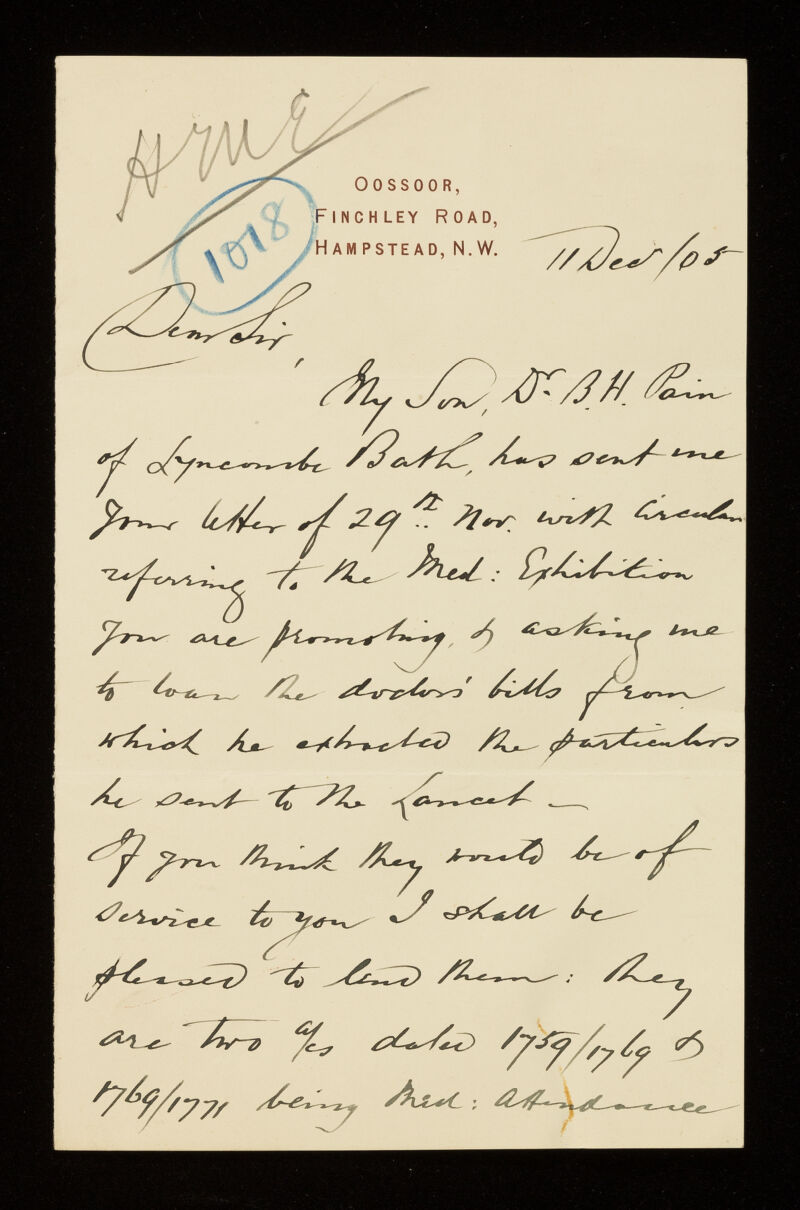 HME
1018
OOSSOOR,
FINCHLEY ROAD,
HAMPSTEAD, N.W.
11 Decr/05
Dear Sir,
My Son, Dr. B. H. Pain
of Lyncombe Bath, has sent me
your letter of 29th. Nov. with Circular
referring to the Med: Exhibition
you are promoting, & asking me
to loan the doctors' bills from
which he extracted the particulars
he sent to the Lancet –
If you think they would be of
service to you I shall be
pleased to lend them: they
are two a/cs dated 1759/1769 &
1769/1771 being Med: Attendance